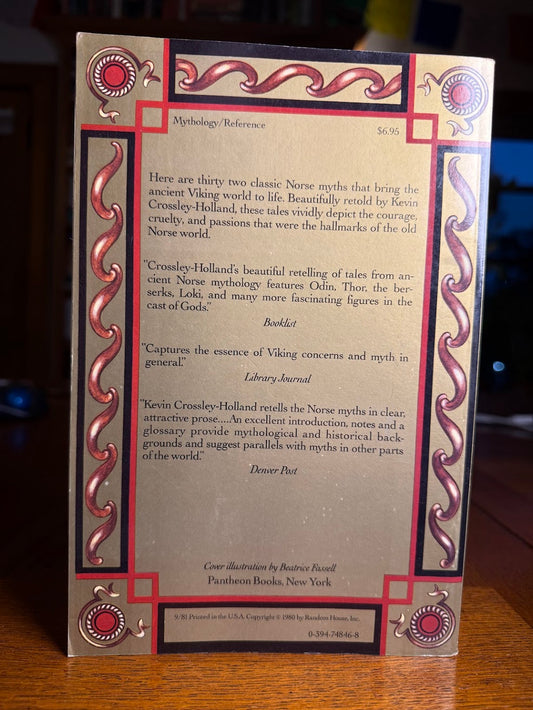 Mythology/Reference
$6.95
Here are thirty two classic Norse myths that bring the
ancient Viking world to life. Beautifully retold by Kevin
Crossley-Holland, these tales vividly depict the courage,
cruelty, and passions that were the hallmarks of the old
Norse world.
"Crossley-Holland's beautiful retelling of tales from an-
cient Norse mythology features Odin, Thor, the ber-
serks, Loki, and many more fascinating figures in the
cast of Gods."
Booklist
"Captures the essence of Viking concerns and myth in
general."
Library Journal
"Kevin Crossley-Holland retells the Norse myths in clear,
attractive prose....An excellent introduction, notes and a
glossary provide mythological and historical back-
grounds and suggest parallels with myths in other parts
of the world."
Denver Post
Cover illustration by Beatrice Fassell
Pantheon Books, New York
9/81 Printed in the U.S.A. Copyright © 1980 by Random House, Inc.
0-394-74846-8